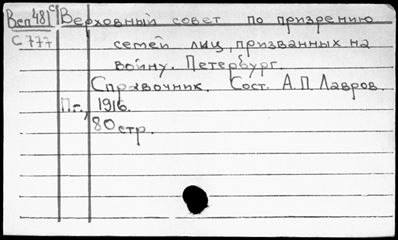 Всп 481с Верховный совет по призрению
С 777 семей лиц, призванных на
войну. Петербург.
Справочник. Сост. А.П. Лавров.
П-г., 1916.
80 стр.